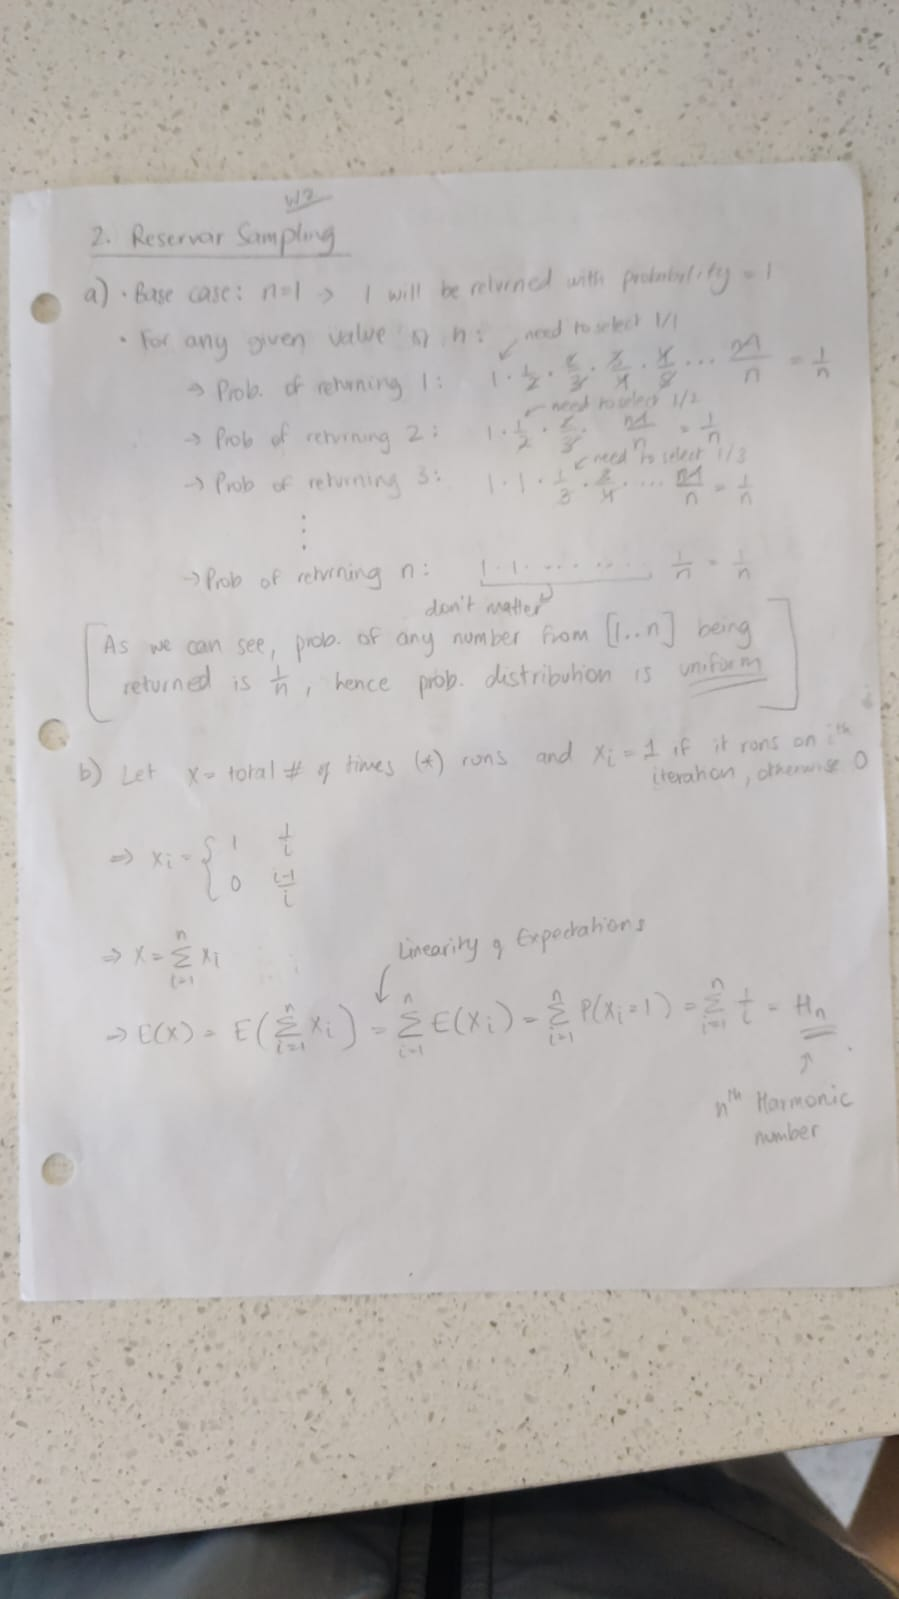 W2
2. Reservoir Sampling
a) · Base case: n=1 → 1 will be returned with probability = 1
· For any given value n:
need to select 1/1
→ Prob. of returning 1: 1 · 1/2 · 2/3 · 3/4 · 4/5 ... n-1/n = 1/n
need to select 1/2
→ Prob of returning 2: 1 · 1/2 · 2/3 · n-1/n = 1/n
need to select 1/3
→ Prob of returning 3: 1 · 1 · 1/3 · 3/4 · ... n-1/n = 1/n
⋮
→ Prob of returning n: 1 · 1 · ... ... 1/n = 1/n
don't matter
[As we can see, prob. of any number from [1..n] being
returned is 1/n, hence prob. distribution is uniform]
b) Let X = total # of times (*) runs and Xi = 1 if it runs on ith
iteration, otherwise 0
⇒ Xi = { 1 1/i
0 i-1/i
⇒ X = Σ_{i=1}^{n} Xi
Linearity of Expectations
⇒ E(X) = E(Σ_{i=1}^{n} Xi) = Σ_{i=1}^{n} E(Xi) = Σ_{i=1}^{n} P(Xi=1) = Σ_{i=1}^{n} 1/i = Hn
nth Harmonic
number